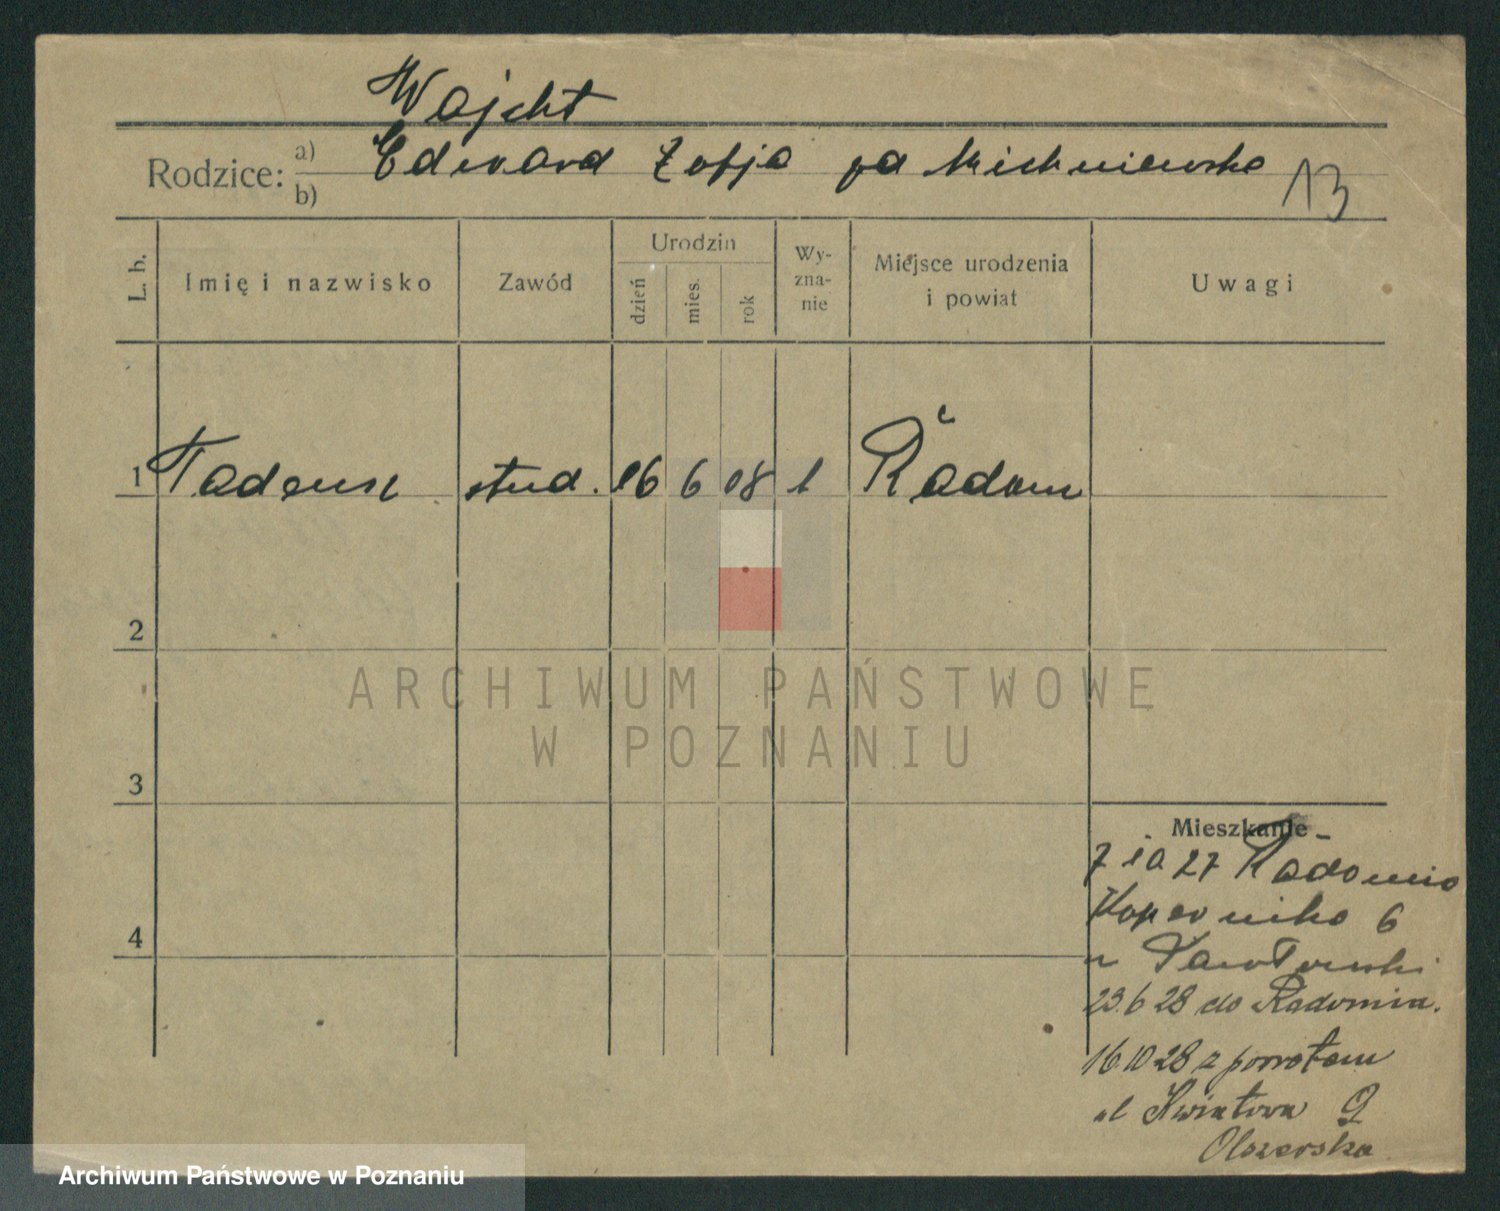 Wojcht
Rodzice: a) Edward Zofja zd Michniewska 13
b)
L. b. Imię i nazwisko Zawód Urodzin dzień mies. rok Wy-zna-nie Miejsce urodzenia i powiat Uwagi
1 Tadeusz stud. 16 6 08 1 Radom
2
3
4
Mieszkanie
7 10 27 Radomia
Kopernika 6
u Pawłowski
23.6 28 do Radomia.
16.10 28 z powrotem
ul Kwiatowa 9
Olszewska
ARCHIWUM PAŃSTWOWE
W POZNANIU
Archiwum Państwowe w Poznaniu